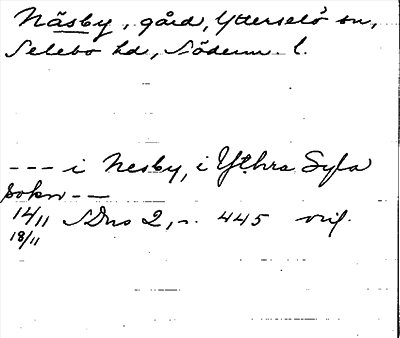 Näsby, gård, Ytterselö sn,
Selebo hd, Söderm. l.
--- i Nesby, i Ythra Syla
sokn --
14/11 SDns 2, 445 orig.
18/11